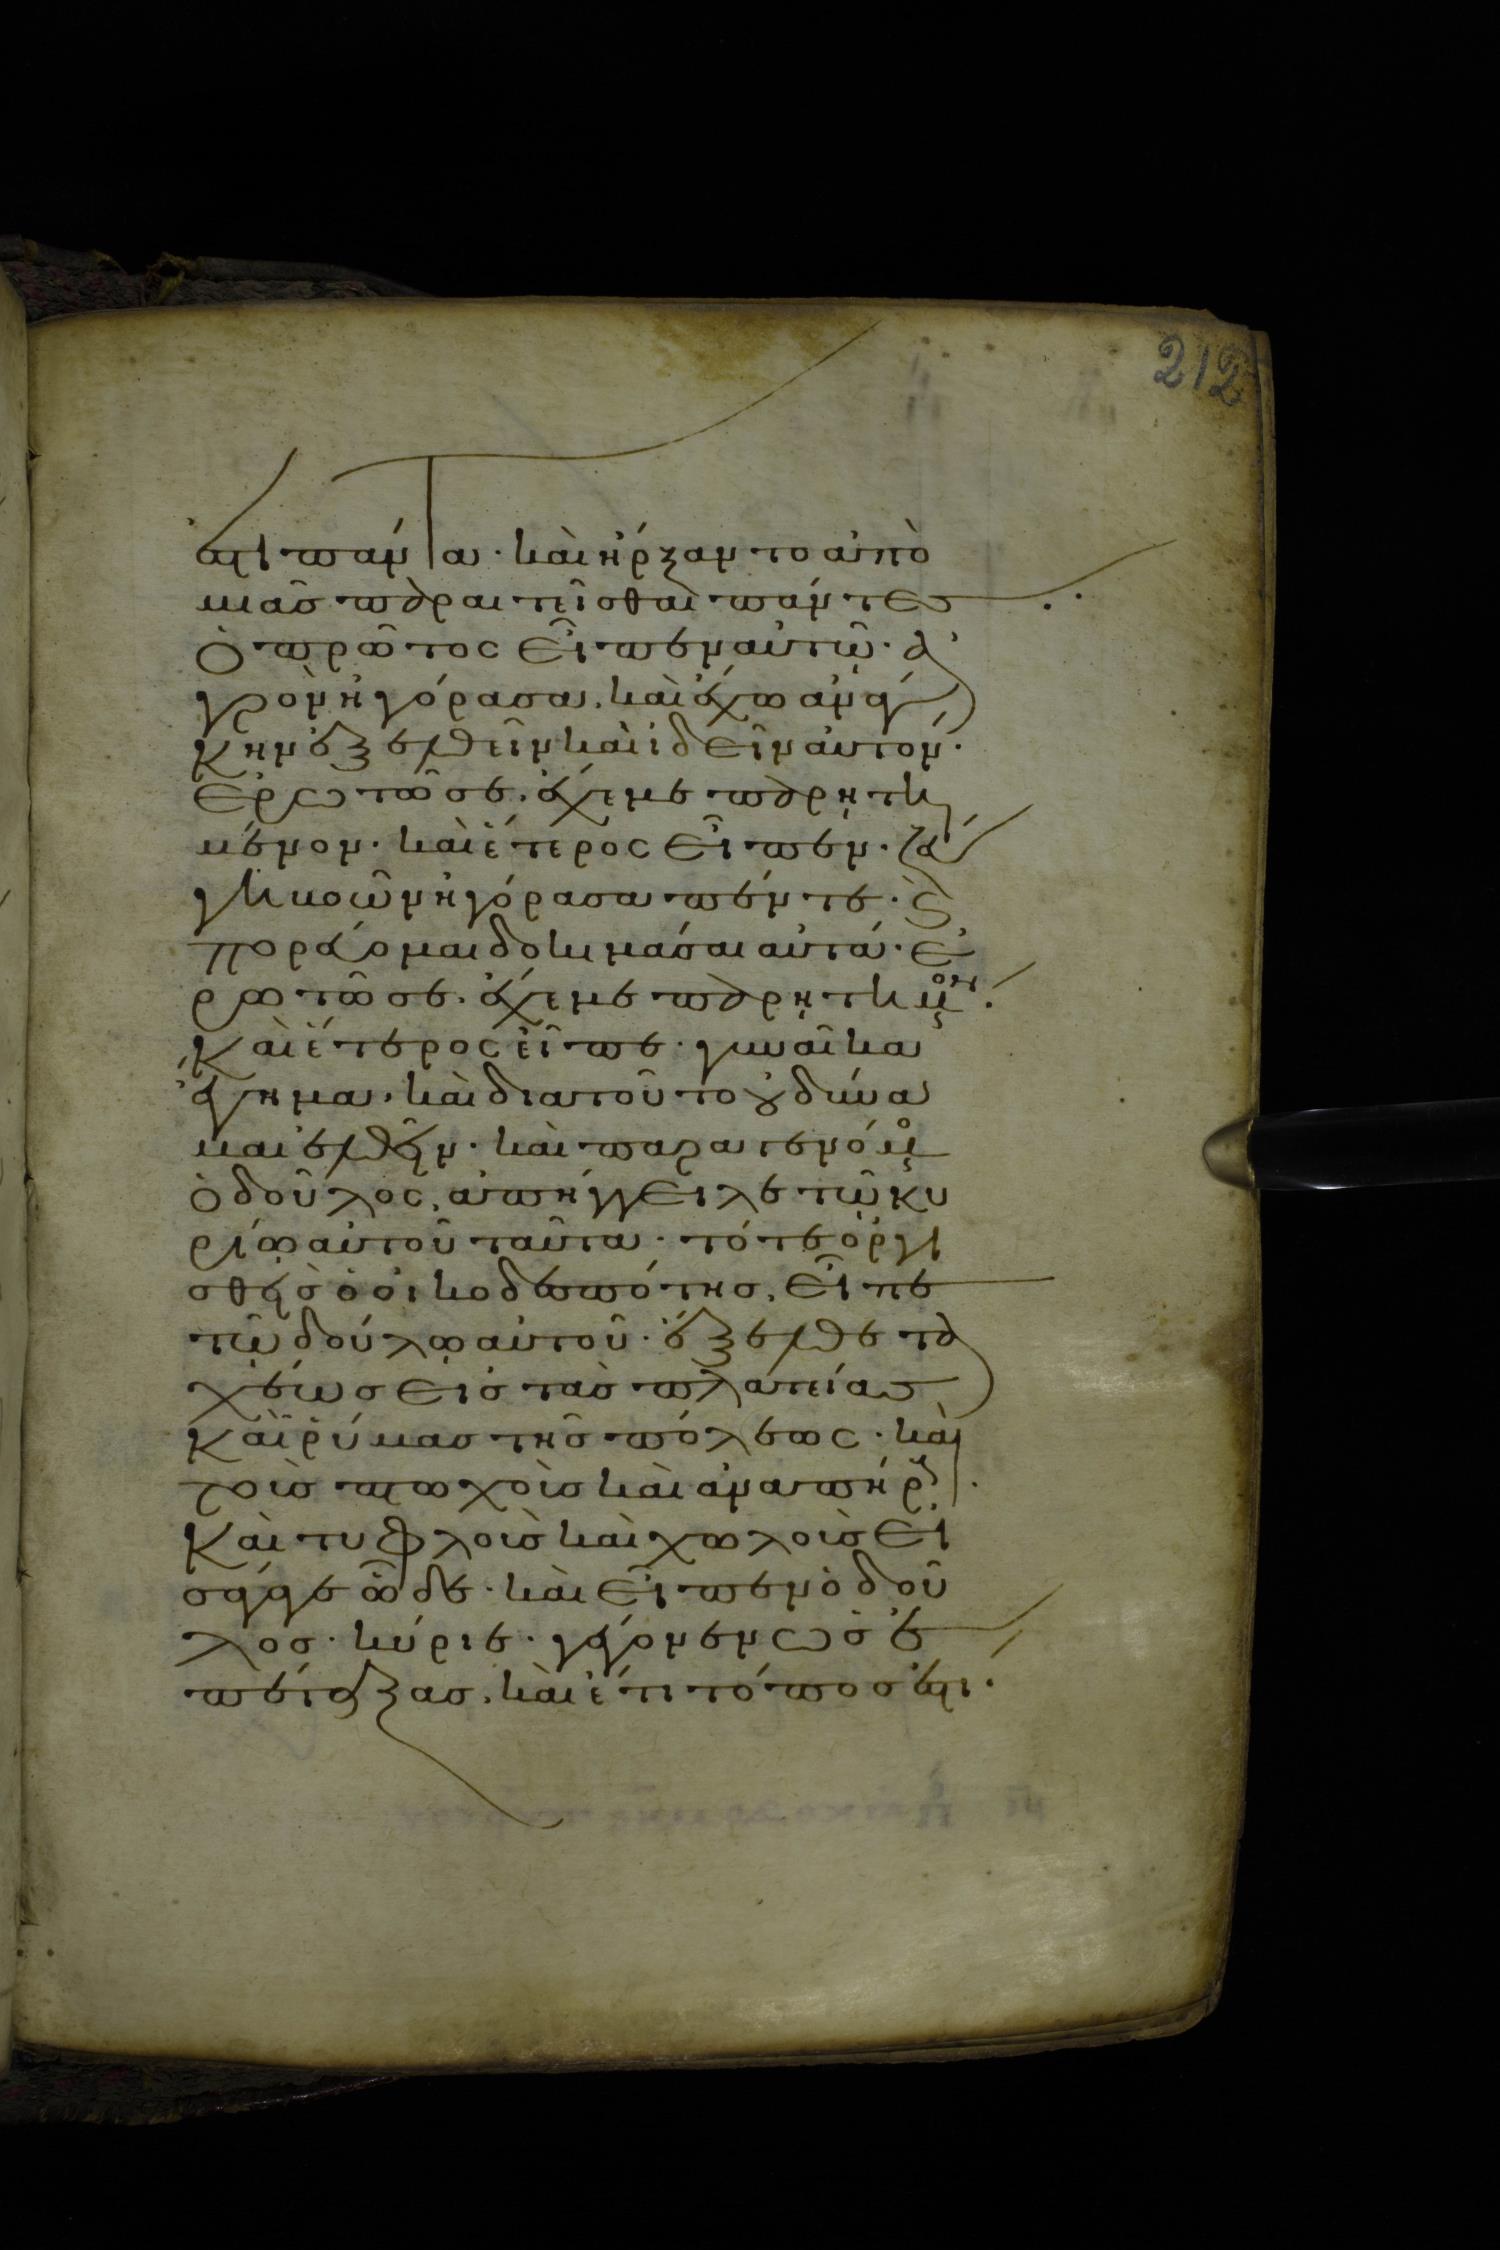 212
ἐστι πάντα· καὶ ἤρξαντο ἀπὸ
μιᾶσ παραιτεῖσθαι πάντες·
Ὁ πρῶτος εἶπεν αὐτῶ· ἀ
γρὸν ἠγόρασα, καὶ ἔχω ἀνάγ
κην ἐξελθεῖν καὶ ἰδεῖν αὐτόν·
Ἐρωτῶ σε, ἔχε με παρῃτη
μένον· καὶ ἕτερος εἶπεν· ζεύ
γη βοῶν ἠγόρασα πέντε· καὶ
πορεύομαι δοκιμάσαι αὐτά· ἐ
ρωτῶ σε, ἔχε με παρῃτημένον·
Καὶ ἕτερος εἶπε· γυναῖκα
ἔγημα, καὶ διατοῦτο οὐ δύνα
μαι ἐλθεῖν· καὶ παραγενόμενος
ὁ δοῦλος, ἀπήγγειλε τῶ κυ
ρίω αὐτοῦ ταῦτα· τότε ὀργι
σθεὶσ ὁ οἰκοδεσπότησ, εἶπε
τῶ δούλω αὐτοῦ· ἔξελθε τα
χέωσ εἰσ τὰσ πλατείασ
καὶ ῥύμασ τῆσ πόλεως· καὶ
τοὺσ πτωχοὺσ καὶ ἀναπήρους
Καὶ τυφλοὺσ καὶ χωλοὺσ εἰ
σάγαγε ὧδε· καὶ εἶπεν ὁ δοῦ
λοσ· κύριε· γέγονεν ὡσ ἐ
πέταξασ, καὶ ἔτι τόποσ ἐστί·